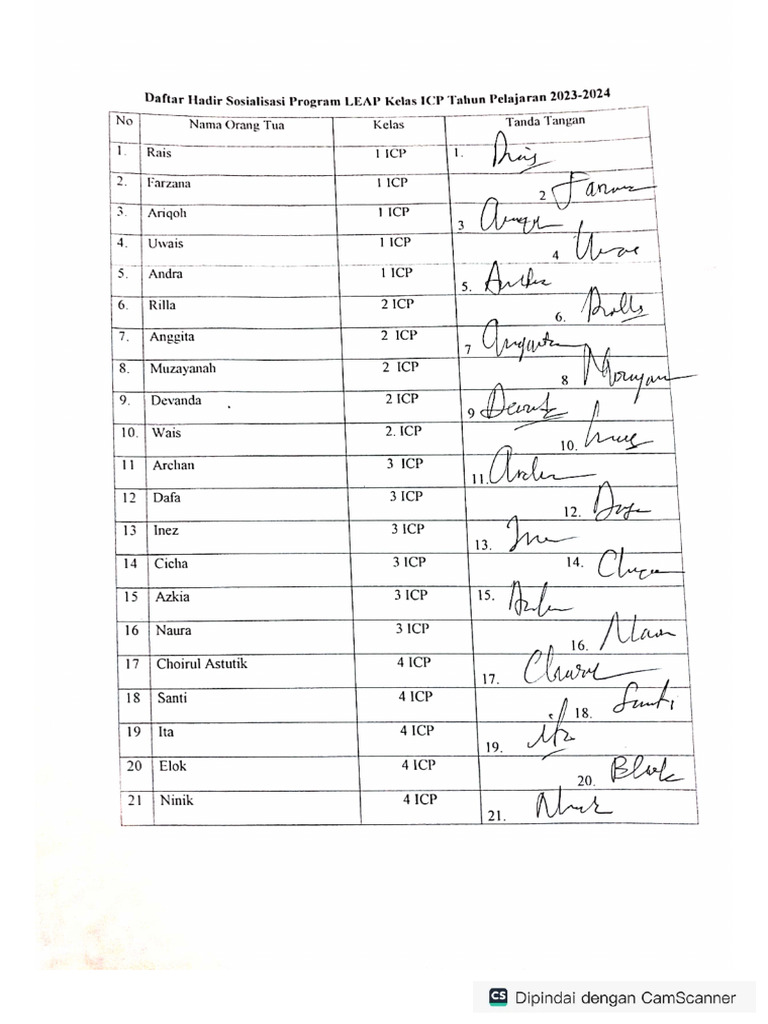 Daftar Hadir Sosialisasi Program LEAP Kelas ICP Tahun Pelajaran 2023-2024
No Nama Orang Tua Kelas Tanda Tangan
1. Rais 1 ICP 1.
2. Farzana 1 ICP 2
3. Ariqoh 1 ICP 3
4. Uwais 1 ICP 4
5. Andra 1 ICP 5.
6. Rilla 2 ICP 6.
7. Anggita 2 ICP 7
8. Muzayanah 2 ICP 8
9. Devanda 2 ICP 9
10. Wais 2. ICP 10.
11 Archan 3 ICP 11.
12 Dafa 3 ICP 12.
13 Inez 3 ICP 13.
14 Cicha 3 ICP 14.
15 Azkia 3 ICP 15.
16 Naura 3 ICP 16.
17 Choirul Astutik 4 ICP 17.
18 Santi 4 ICP 18. Santi
19 Ita 4 ICP 19. ita
20 Elok 4 ICP 20.
21 Ninik 4 ICP 21.
CS Dipindai dengan CamScanner